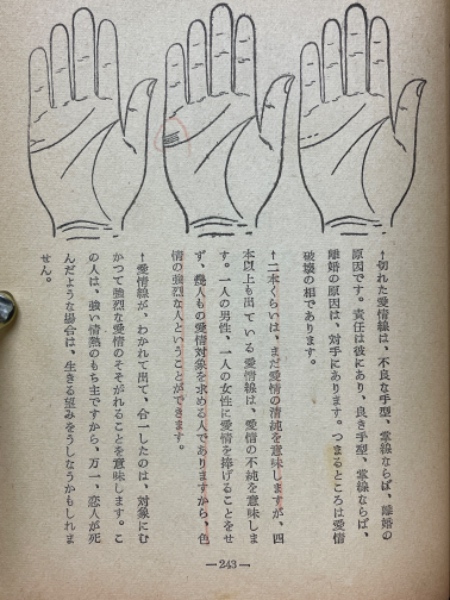 ↑切れた愛情線は、不良な手型、掌線ならば、離婚の
原因です。責任は彼にあり、良き手型、掌線ならば、
離婚の原因は、対手にあります。つまるところは愛情
破壊の相であります。
↑二本くらいは、まだ愛情の清純を意味しますが、四
本以上も出ている愛情線は、愛情の不純を意味しま
す。一人の男性、一人の女性に愛情を捧げることをせ
ず、幾人もの愛情対象を求める人でありますから、色
情の強烈な人ということができます。
↑愛情線が、わかれて出て、合一したのは、対象にむ
かつて強烈な愛情のそそがれることを意味します。こ
の人は、強い情熱のもち主ですから、万一、恋人が死
んだような場合は、生きる望みをうしなうかもしれま
せん。
—243—